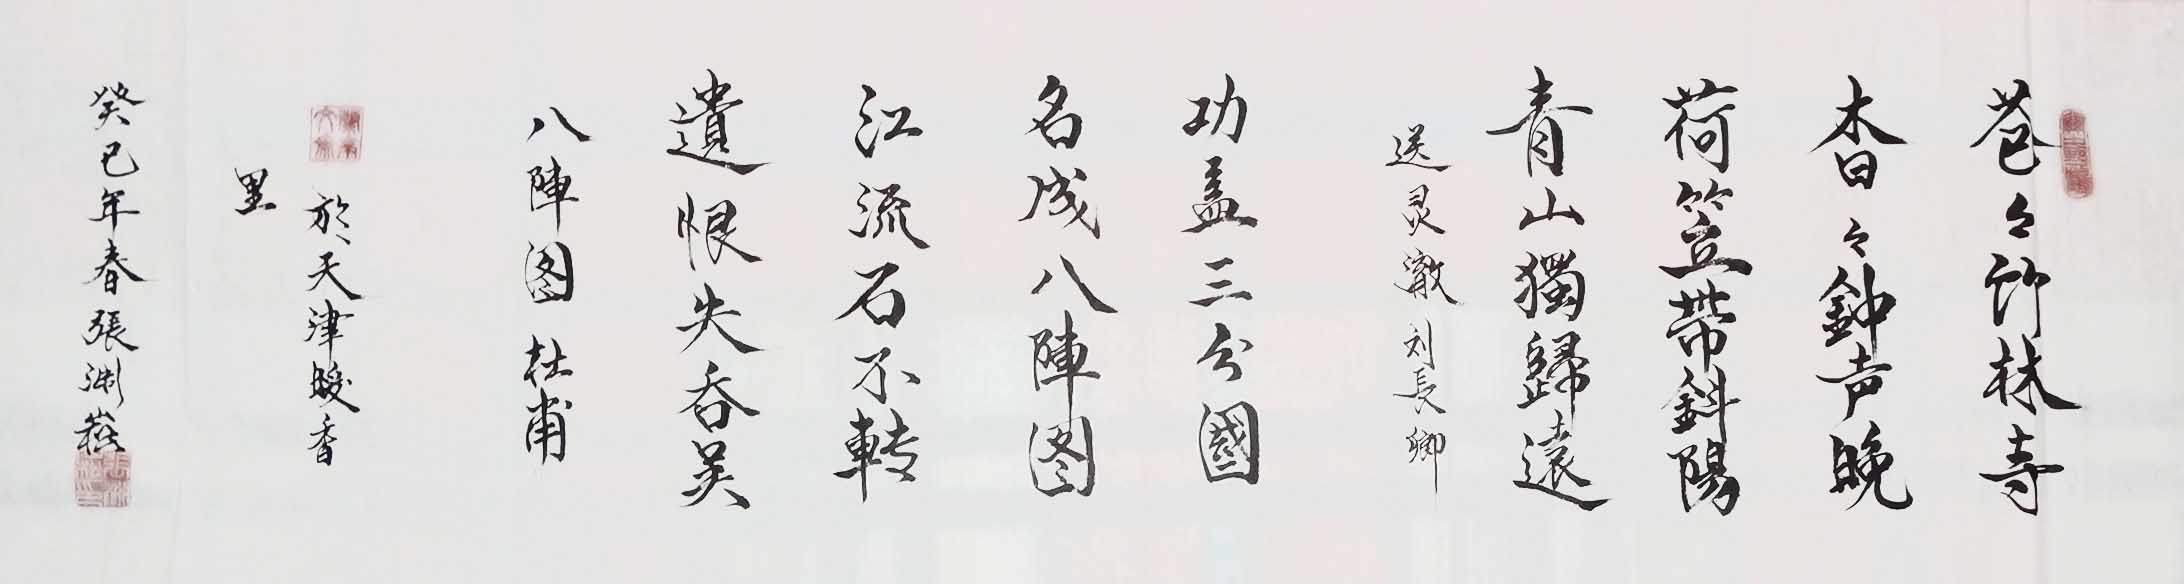 苍々竹林寺
杳々鈡声晚
荷笠带斜陽
青山獨歸遠
送灵澈 刘長卿
功盖三分國
名成八陣图
江流石不转
遺恨失吞吴
八陣图 杜甫
於天津暖香
里
癸巳年春張渊